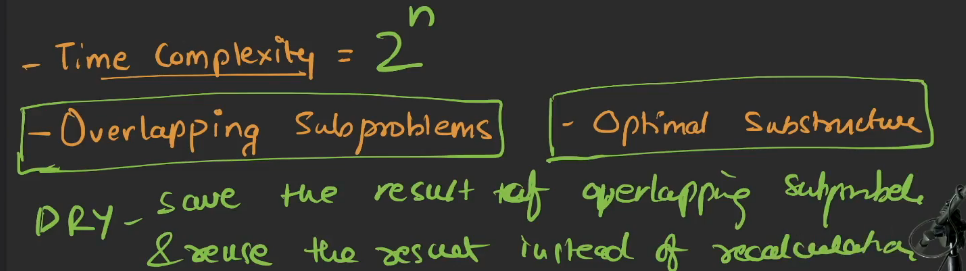 - Time Complexity = 2^n
- Overlapping Subproblems
- Optimal Substructure
DRY - save the result of overlapping
& reuse the result instead of